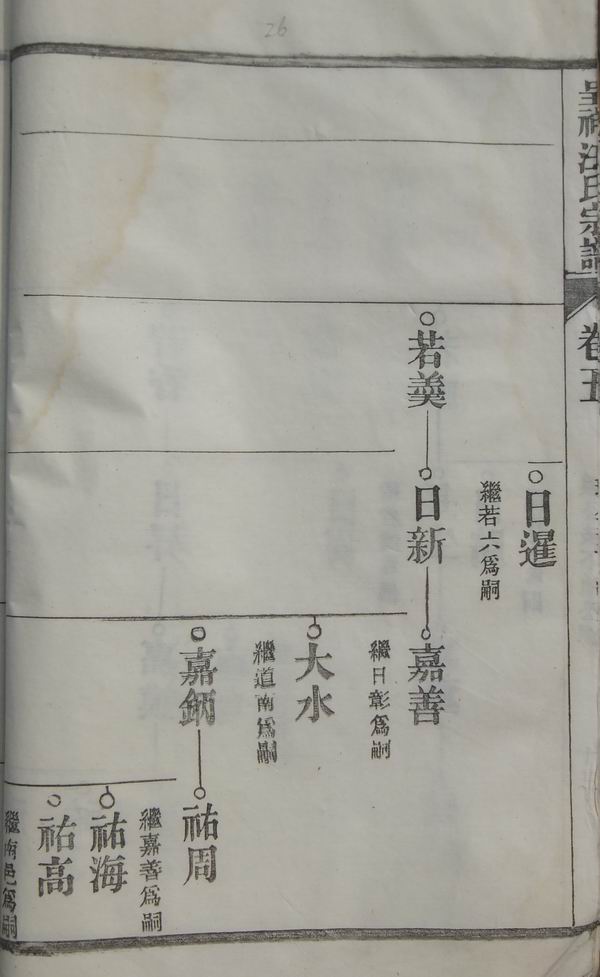 26
汪氏宗譜
卷五
日暹
繼若六為嗣
若羙
日新
嘉善
繼日彰為嗣
大水
繼道南為嗣
嘉鈵
祐周
繼嘉善為嗣
祐海
祐高
繼南邑為嗣